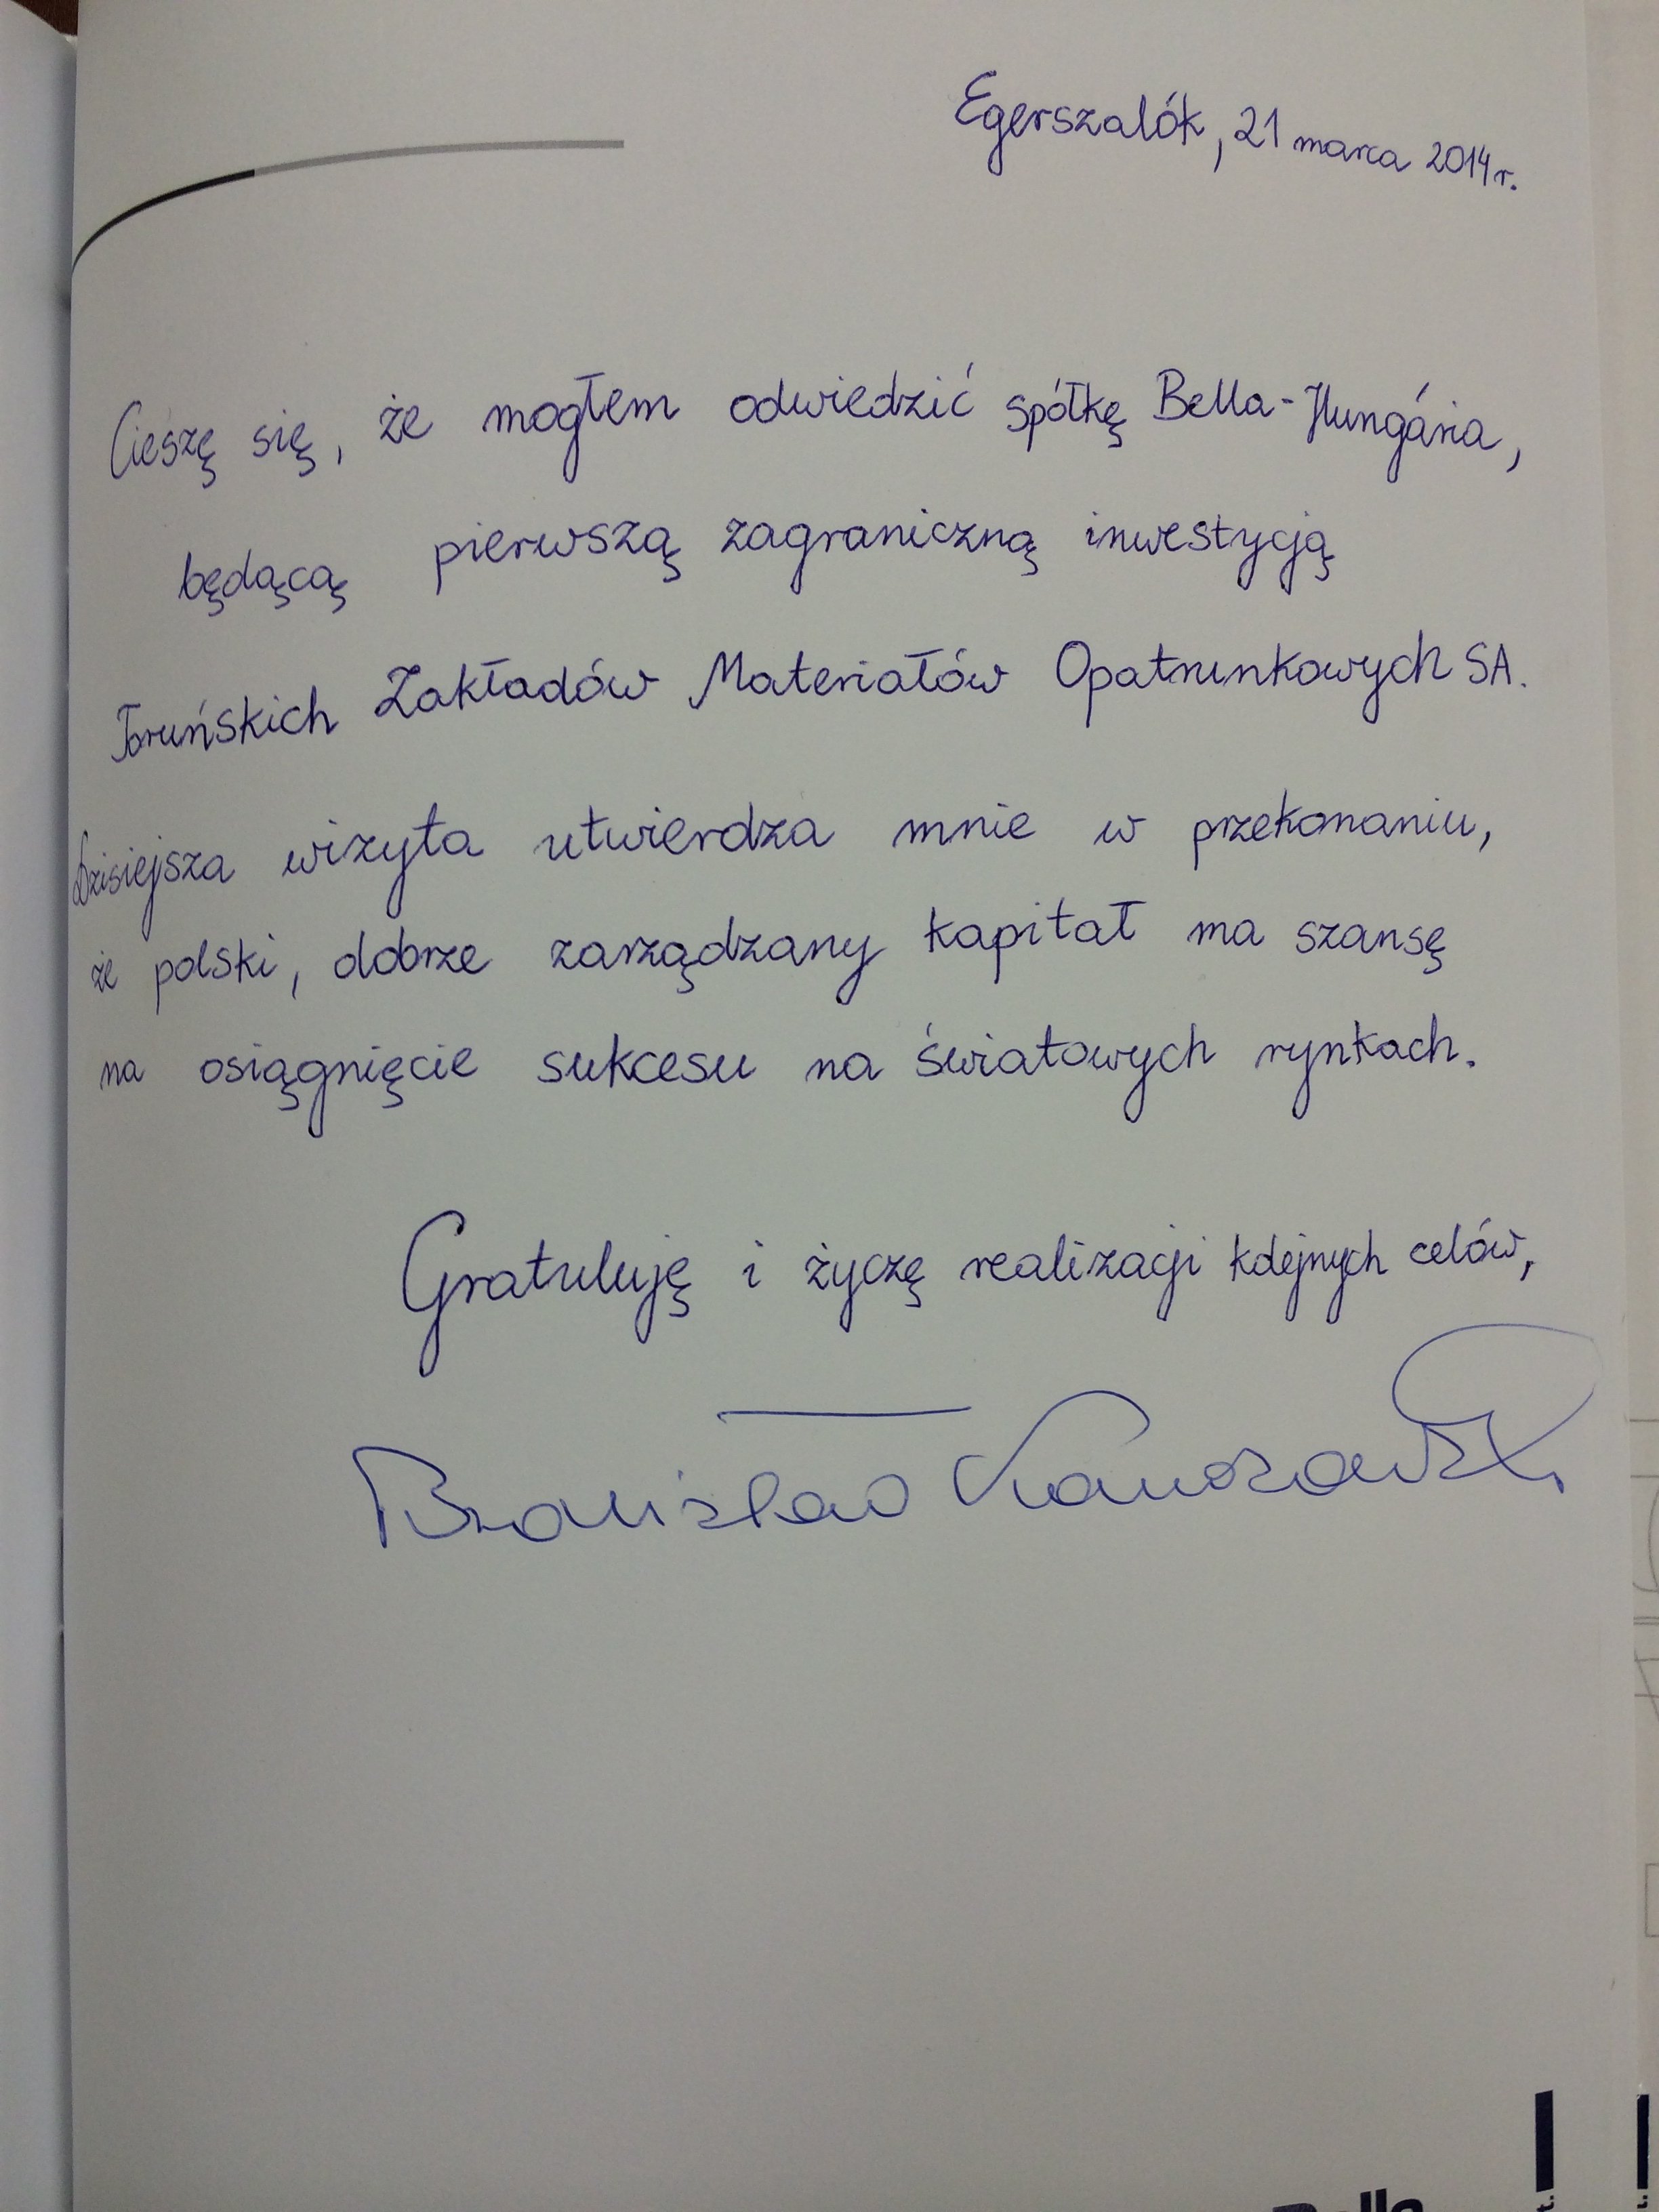 Egerszalók, 21 marca 2014 r.
Cieszę się, że mogłem odwiedzić spółkę Bella-Hungária,
będącą pierwszą zagraniczną inwestycją
Toruńskich Zakładów Materiałów Opatrunkowych SA.
Dzisiejsza wizyta utwierdza mnie w przekonaniu,
że polski, dobrze zarządzany kapitał ma szansę
na osiągnięcie sukcesu na światowych rynkach.
Gratuluję i życzę realizacji kolejnych celów,
Bronisław Komorowski